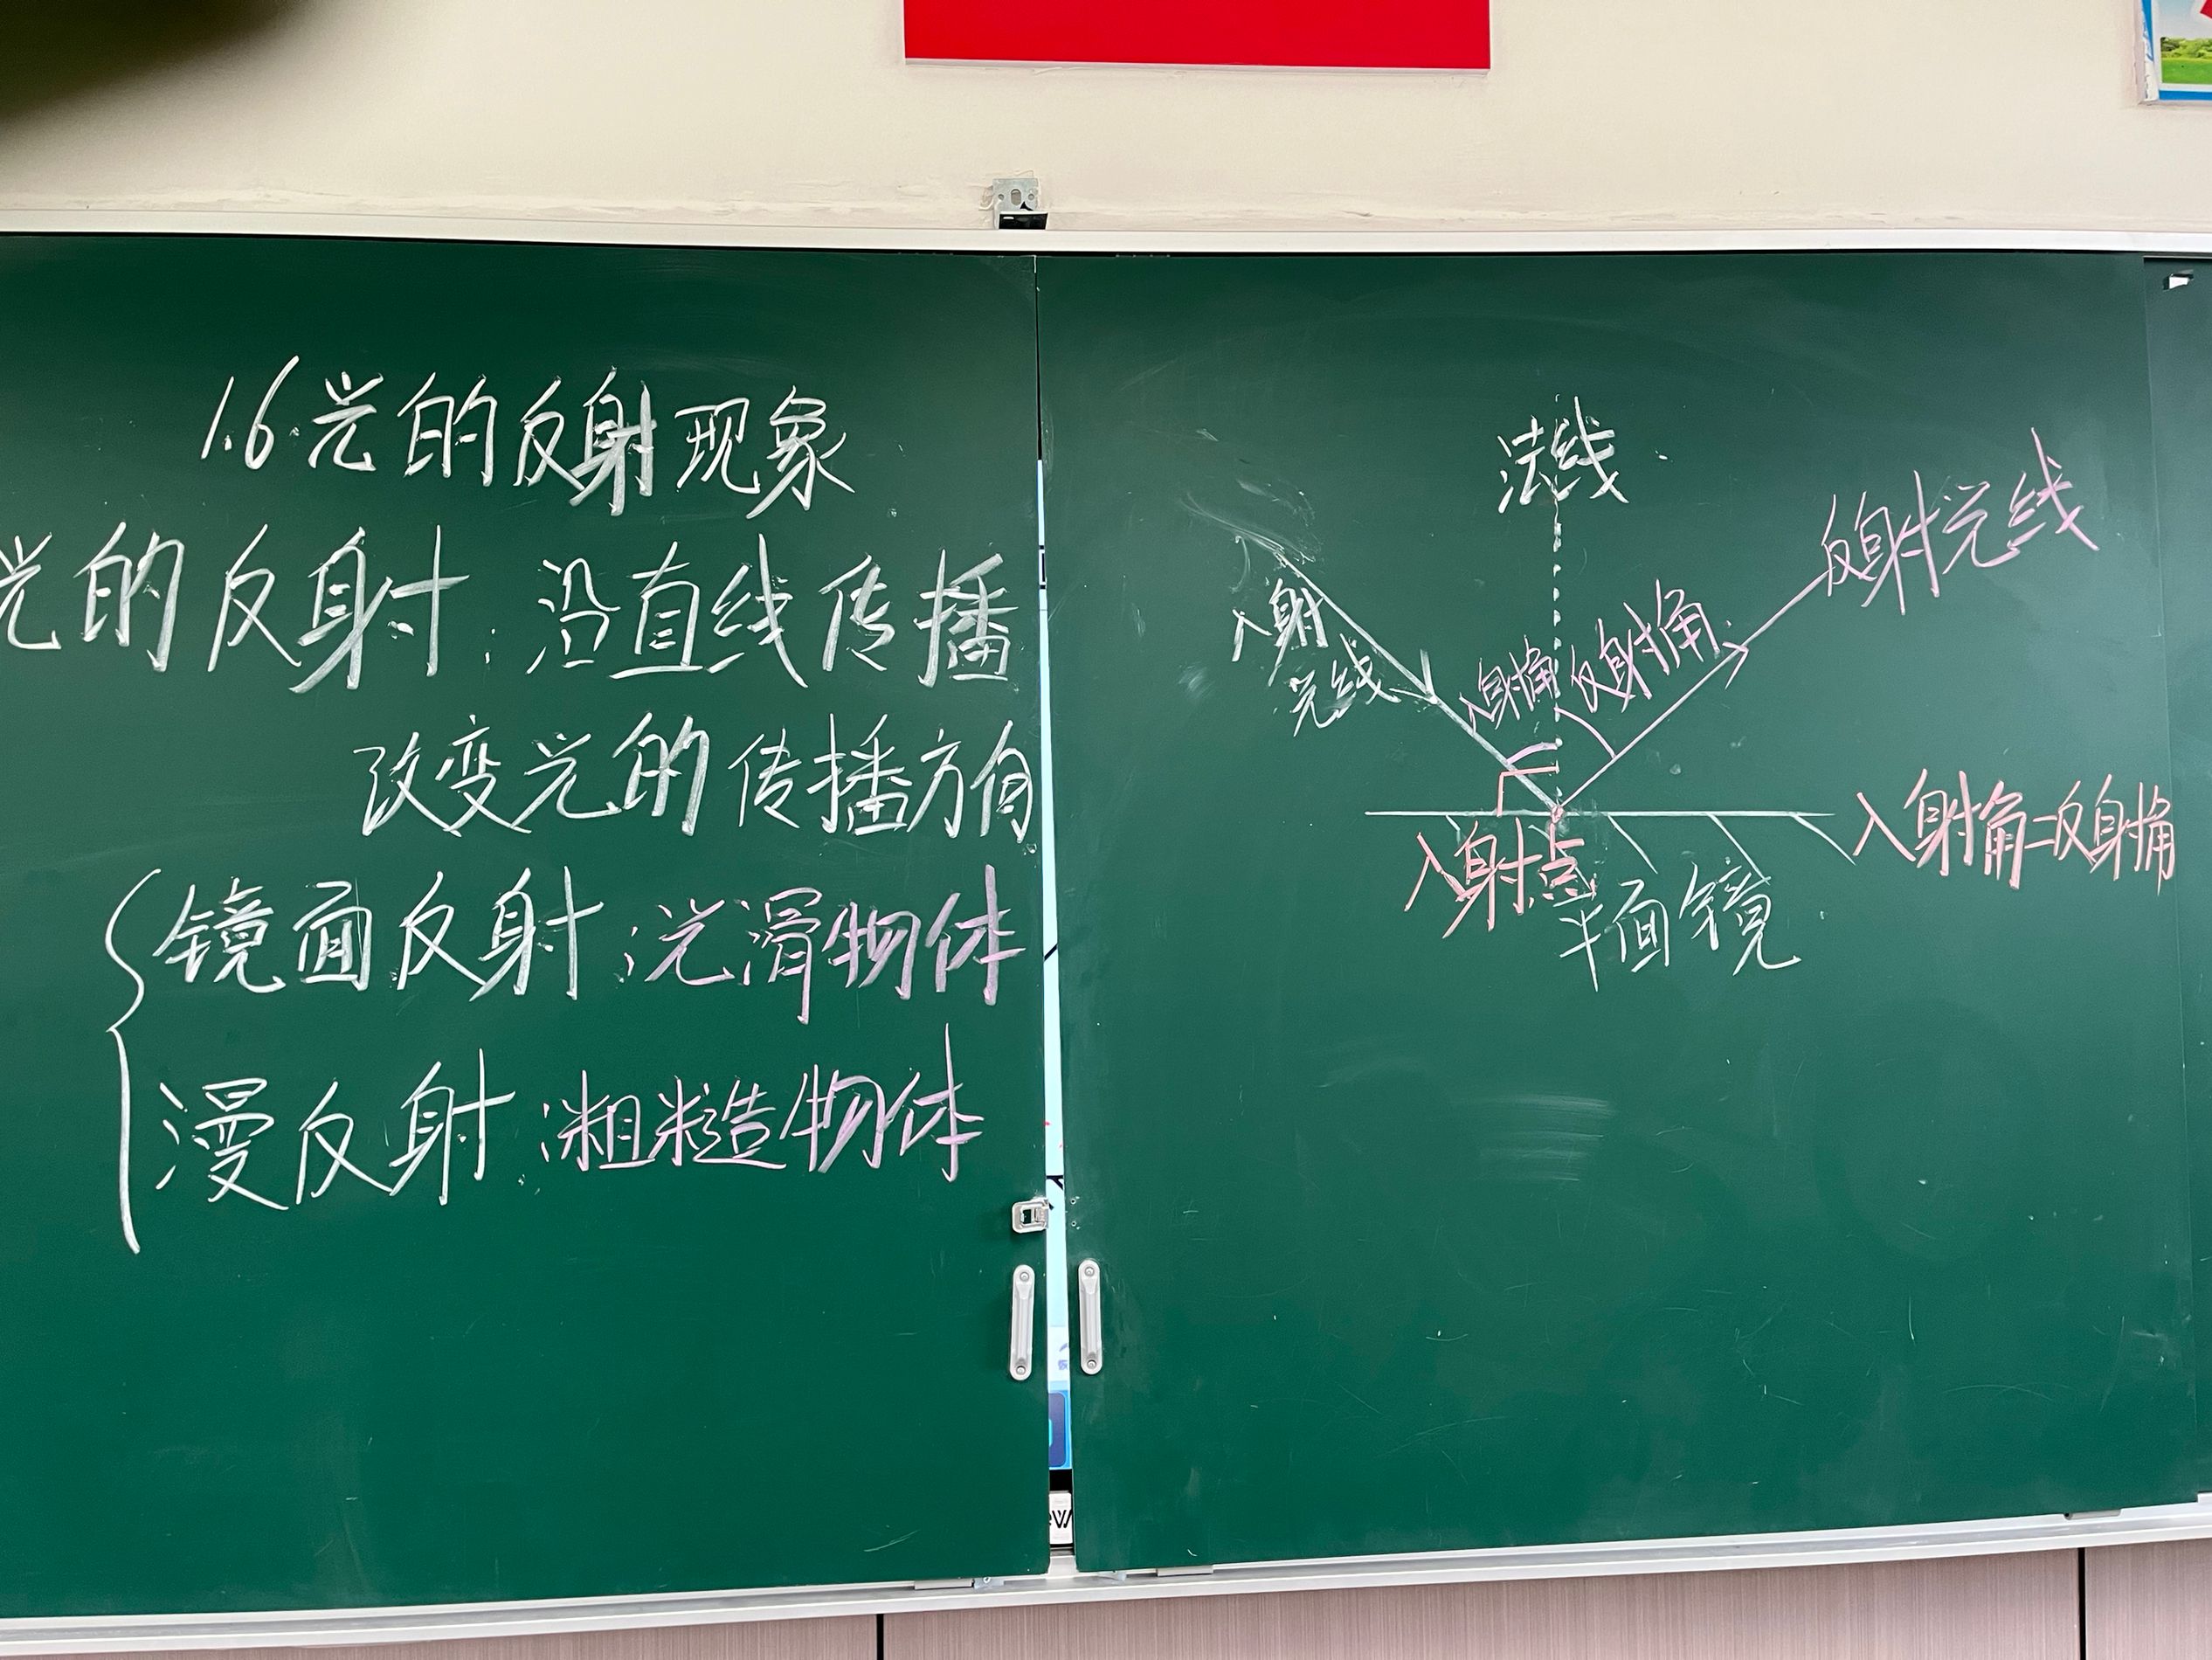 1.6.光的反射现象
光的反射:沿直线传播
改变光的传播方向
镜面反射:光滑物体
漫反射:粗糙物体
法线
反射光线
入射
光线
入射角
反射角
入射角=反射角
入射点
平面镜